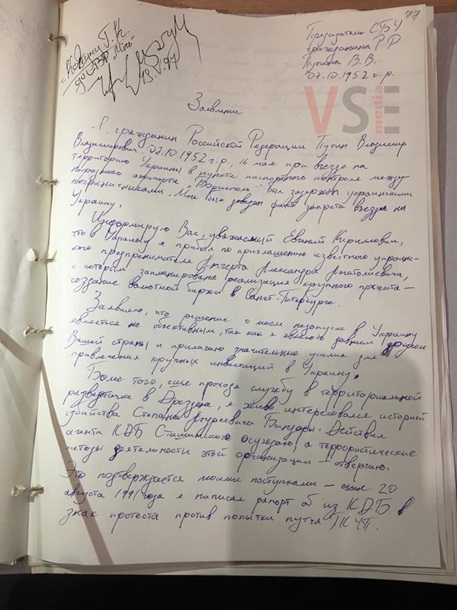 99
VSE
media
18.V.97
СБУ
гражданина РФ
Путина В.В.
07.10.1952 г.р.
Заявление
Я, гражданин Российской Федерации Путин Владимир
Владимирович 07.10.1952 г.р., 16 мая при въезде на
территорию Украины в пункте паспортного контроля между
народного аэропорта "Борисполь" был задержан украинскими
пограничниками. Мне был доведен факт запрета въезда на
Украину.
Информирую Вас, уважаемый Евгений Кириллович,
что в Украину я прибыл по приглашению известного украинс-
кого предпринимателя Александра Анатолиевича,
с которым запланирована реализация крупного проекта –
создание валютной биржи в Санкт-Петербурге.
Заявляю, что решение о моем недопуске в Украину
является не объективным, так как я являюсь давним другом
Вашей страны и прилагаю значительные усилия для
привлечения крупных инвестиций в Украину.
Более того, еще проходя службу в территориальной
разведточке в Дрездене, я живо интересовался историей
убийства Степана Андреевича Бандеры. Действия
агента КДБ Сташинского осуждаю, а террористические
методы деятельности этой организации – отвергаю.
Это подтверждается моими поступками – еще 20
августа 1991 года я написал рапорт из КДБ в
знак протеста против попытки путча ГКЧП.